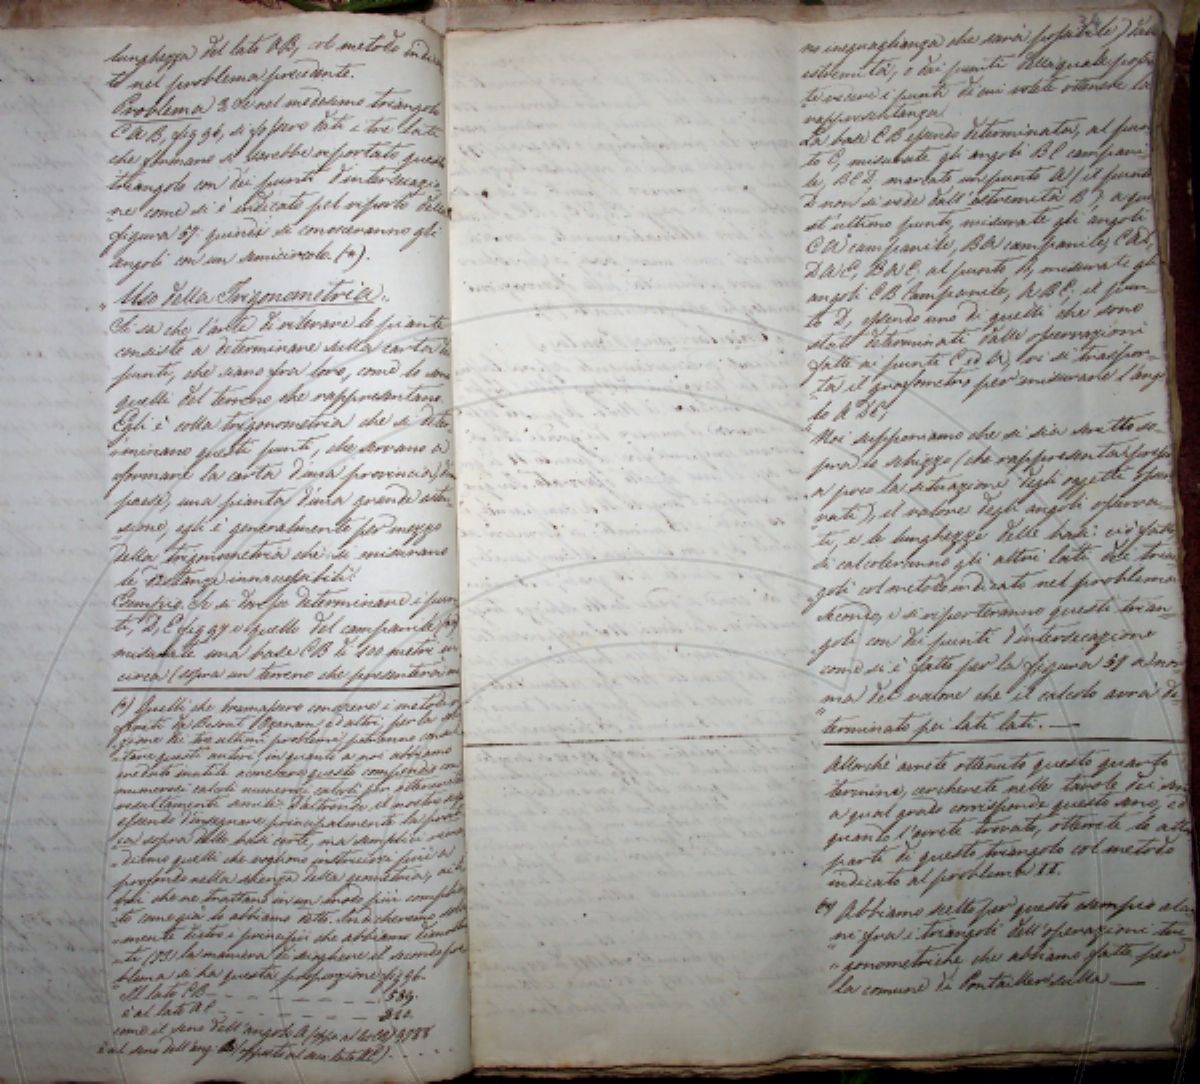 lunghezza del lato AB, col metodo indica
to nel problema precedente.
Problema 3. Se nel medesimo triangolo
CAB, fig 96, si fossero dati i tre lati
che formano si sarebbe riportato questo
triangolo con dei punti d'intersecazio-
ne come si è indicato pel riporto della
figura 57 quindi si conosceranno gli
angoli con un semicircolo. (*).
Uso della Trigonometria.
Si sa che l'arte di rilevare le piante
consiste a determinare sulla carta dei
punti, che siano fra loro, come lo sono
quelli del terreno che rappresentano.
Egli è colla trigonometria che si deter
minano questi punti, che servano a
formare la carta d'una provincia, d'un
paese, una pianta d'una grande esten-
sione, egli è generalmente per mezzo
della trigonometria che si misurano
le distanze innaccessibili.
Esempio. Se si dovesse determinare i pun
ti, D, C fig 97 e quello del campanile (**)
misurate una base CB di 100 metri in
circa (sopra un terreno che presenterà
(*) Quelli che bramassero conoscere i metodi
forniti da Besout, Ozanam, ed altri per la
zione dei tre ultimi problemi potranno consul
tare questi autori, in quanto a noi abbiamo
creduto inutile accrescere questo compendio con
numerosi calcoli numerici calcoli per ottenere
resultamenti simili. D'altronde, il nostro
essendo d'insegnare principalmente la prati
ca sopra delle basi certe, ma semplici
diamo quelli che vogliono instruirsi più a
profondo nella scienza della geometria, ai
bri che ne trattano in un modo più compiu
to come già lo abbiamo detto. Indicheremo
mente dietro i principii che abbiamo dimostra
ti la maniera di sciogliere il secondo pro
blema si ha questa proporzione fig 96.
Il lato CB _ _ _ _ _ _ 589.
è al lato AC _ _ _ _ _ _ 210.
come il seno dell'angolo A (opposto al lato CB) 9788
è al seno dell'ang. B (opposto al suo lato AC) . . . .
no ineguaglianza che sarà possibile) dalle
estremità, o dai punti della quale possia
te vedere i punti di cui volete ottenere la
rappresentanza
La base CB essendo determinata, al pun
to C, misurate gli angoli BC campani-
le, BCD, marcate un punto A) il punto
D non si vede dall'estremità B), a que
st'ultimo punto, misurate gli angoli
CA campanile, BA campanile, CAD,
DAC, BAC. al punto B, misurate gli
angoli CB Campanile, ABC, il pun-
to D, essendo uno di quelli che sono
stati determinati dalle osservazioni
fatte ai punti C ed A, ivi si traspor-
ta il grafometro per misurare l'ango
lo ADC,
Noi supponiamo che si sia scritto so-
pra lo schizzo (che rappresenta presso
a poco la situazione degli oggetti osser
vati), il valore degli angoli osserva
ti, e le lunghezze delle basi: ciò fatto
si calcoleranno gli altri lati dei trian
goli col metodo indicato nel problema
secondo, e si riporteranno questi trian-
goli con dei punti d'intersecazione
come si è fatto per la figura 59 a nor
ma del valore che il calcolo avrà de-
terminato pei lati lati.
Allorchè avrete ottenuto questo quarto
termine, cercherete nelle tavole dei seni
a qual grado corrisponde questo seno, e
quando l'avrete trovato, otterrete le altre
parti di questo triangolo col metodo
indicato al problema II.
(**) Abbiamo scelto per questo esempio alcu
ni fra i triangoli dell'operazioni tri
gonometriche che abbiamo fatte per
la comune di